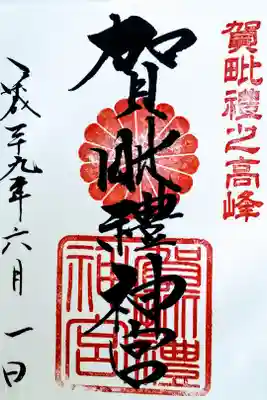 賀毗禮之高峰
賀毗禮神宮
平成二十九年六月一日
賀毗禮
神宮